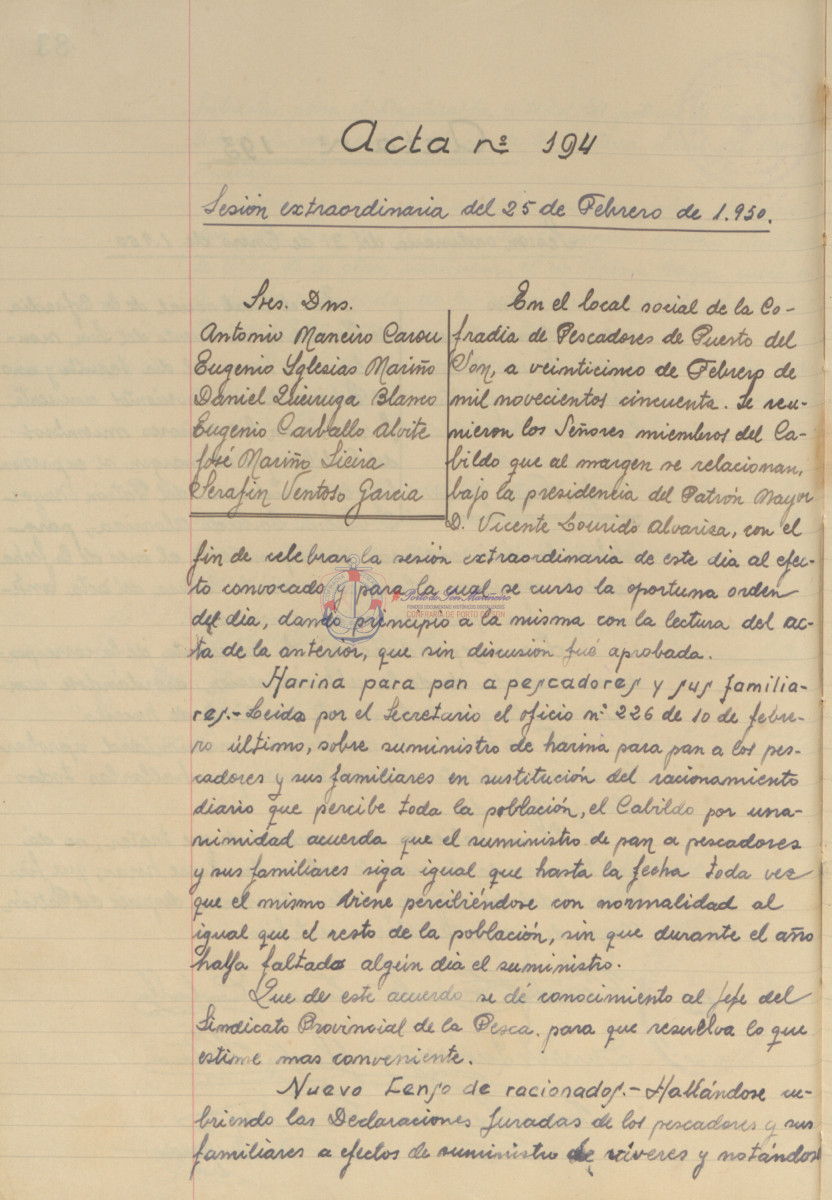 Acta nº 194
Sesión extraordinaria del 25 de Febrero de 1.950.
Sres. Dns.
Antonio Maneiro Carou
Eugenio Yglesias Mariño
Daniel Queiruga Blanco
Eugenio Carballo Alvite
José Mariño Sieira
Serafín Ventoso Garcia
En el local social de la Co-
fradia de Pescadores de Puerto del
Son, a veinticinco de Febrero de
mil novecientos cincuenta. Se reu-
nieron los Señores miembros del Ca-
bildo que al margen se relacionan,
bajo la presidencia del Patrón Mayor
D. Vicente Lourido Alvariza, con el
fin de celebrar la sesión extraordinaria de este dia al efec-
to convocado y para la cual se curso la oportuna orden
del dia, dando principio a la misma con la lectura del ac-
ta de la anterior, que sin discusión fué aprobada.
Harina para pan a pescadores y sus familia-
res.- Leido por el Secretario el oficio nº 226 de 10 de febre-
ro último, sobre suministro de harina para pan a los pes-
cadores y sus familiares en sustitución del racionamiento
diario que percibe toda la población, el Cabildo por una-
nimidad acuerda que el suministro de pan a pescadores
y sus familiares siga igual que hasta la fecha toda vez
que el mismo viene percibiéndose con normalidad al
igual que el resto de la población, sin que durante el año
halla faltado algún dia el suministro.
Que de este acuerdo se dé conocimiento al Jefe del
Sindicato Provincial de la Pesca, para que resuelva lo que
estime mas conveniente.
Nuevo Censo de racionados.- Hallándose cu-
briendo las Declaraciones Juradas de los pescadores y sus
familiares a efectos de suministro de viveres y notándos
Porto do Son Mariñeiro
CONFRARÍA DE PORTO DO SON